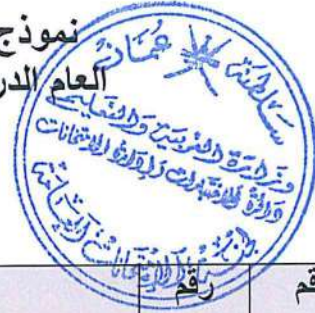 نموذج
العام الدر
سلطنة عُمان
وزارة التربية والتعليم
دائرة الاختبارات وإدارة الامتحانات
رقم
قم